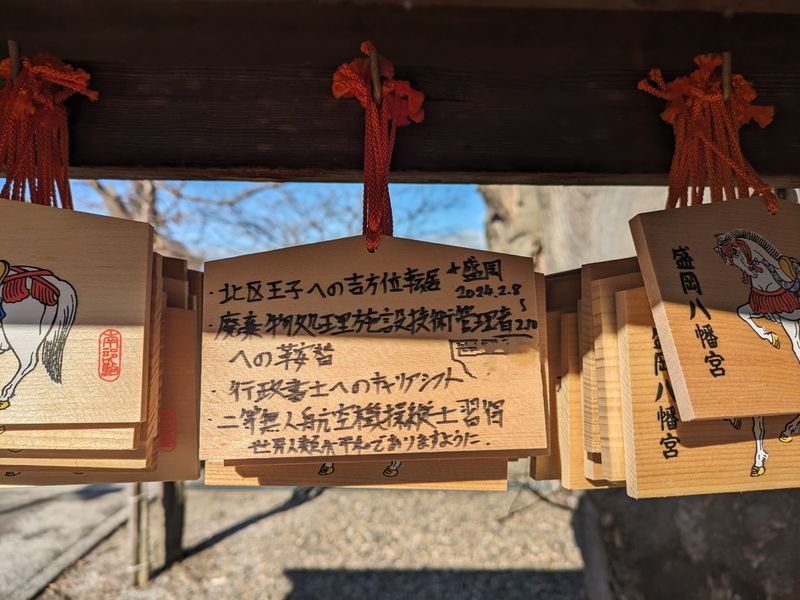 南部駒
・北区王子への吉方位転居 +盛岡
2024.2.8
〜
2.10
・廃棄物処理施設技術管理者
への鞍替
・行政書士へのキャリアシフト
二等無人航空機操縦士習得
世界人類が平和でありますように.
盛岡八幡宮
盛岡八幡宮